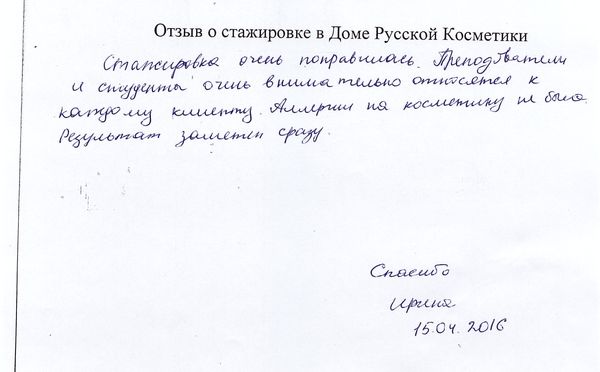 Отзыв о стажировке в Доме Русской Косметики
Стажировка очень понравилась. Преподователи
и студенты очень внимательно относятся к
каждому клиенту. Аллергии на косметику не было.
Результат заметен сразу.
Спасибо
Ирина
15.04. 2016